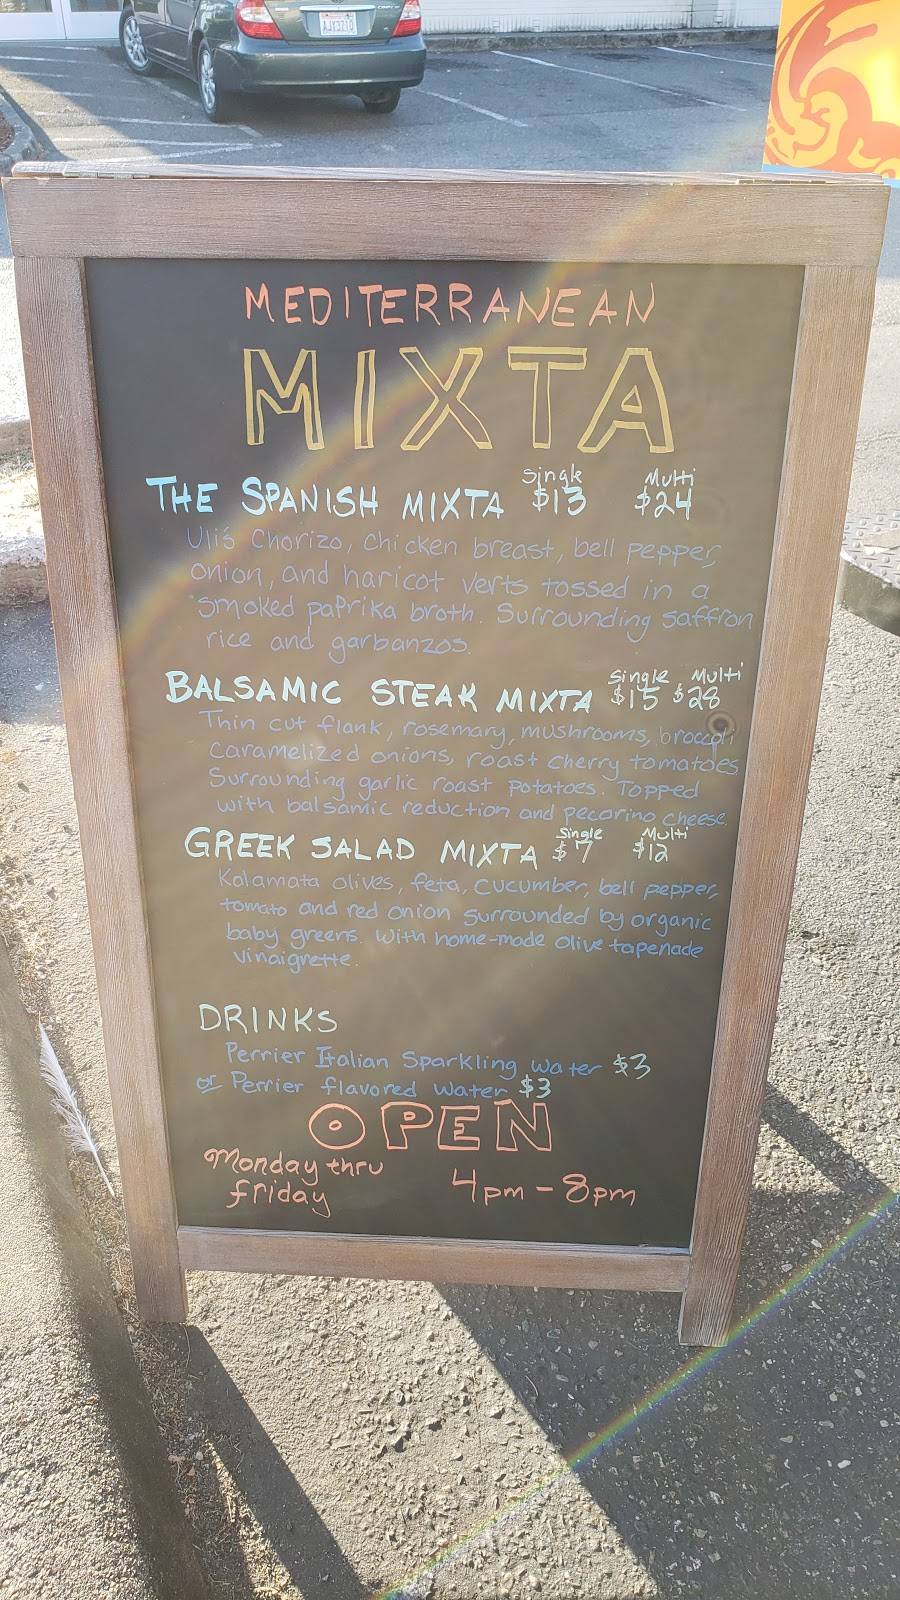 AJX3210
MEDITERRANEAN
MIXTA
THE SPANISH MIXTA Single $13 Multi $24
Uli's Chorizo, Chicken breast, bell pepper,
onion, and haricot verts tossed in a
smoked paprika broth. Surrounding saffron
rice and garbanzos.
BALSAMIC STEAK MIXTA Single $15 Multi $28
Thin cut flank, rosemary, mushrooms, broccoli
caramelized onions, roast cherry tomatoes
Surrounding garlic roast potatoes. Topped
with balsamic reduction and pecorino cheese.
GREEK SALAD MIXTA Single $7 Multi $12
Kalamata olives, feta, cucumber, bell pepper,
tomato and red onion surrounded by organic
baby greens. With home-made olive tapenade
vinaigrette.
DRINKS
Perrier Italian Sparkling water $3
or Perrier flavored water $3
OPEN
Monday thru 4pm - 8pm
friday